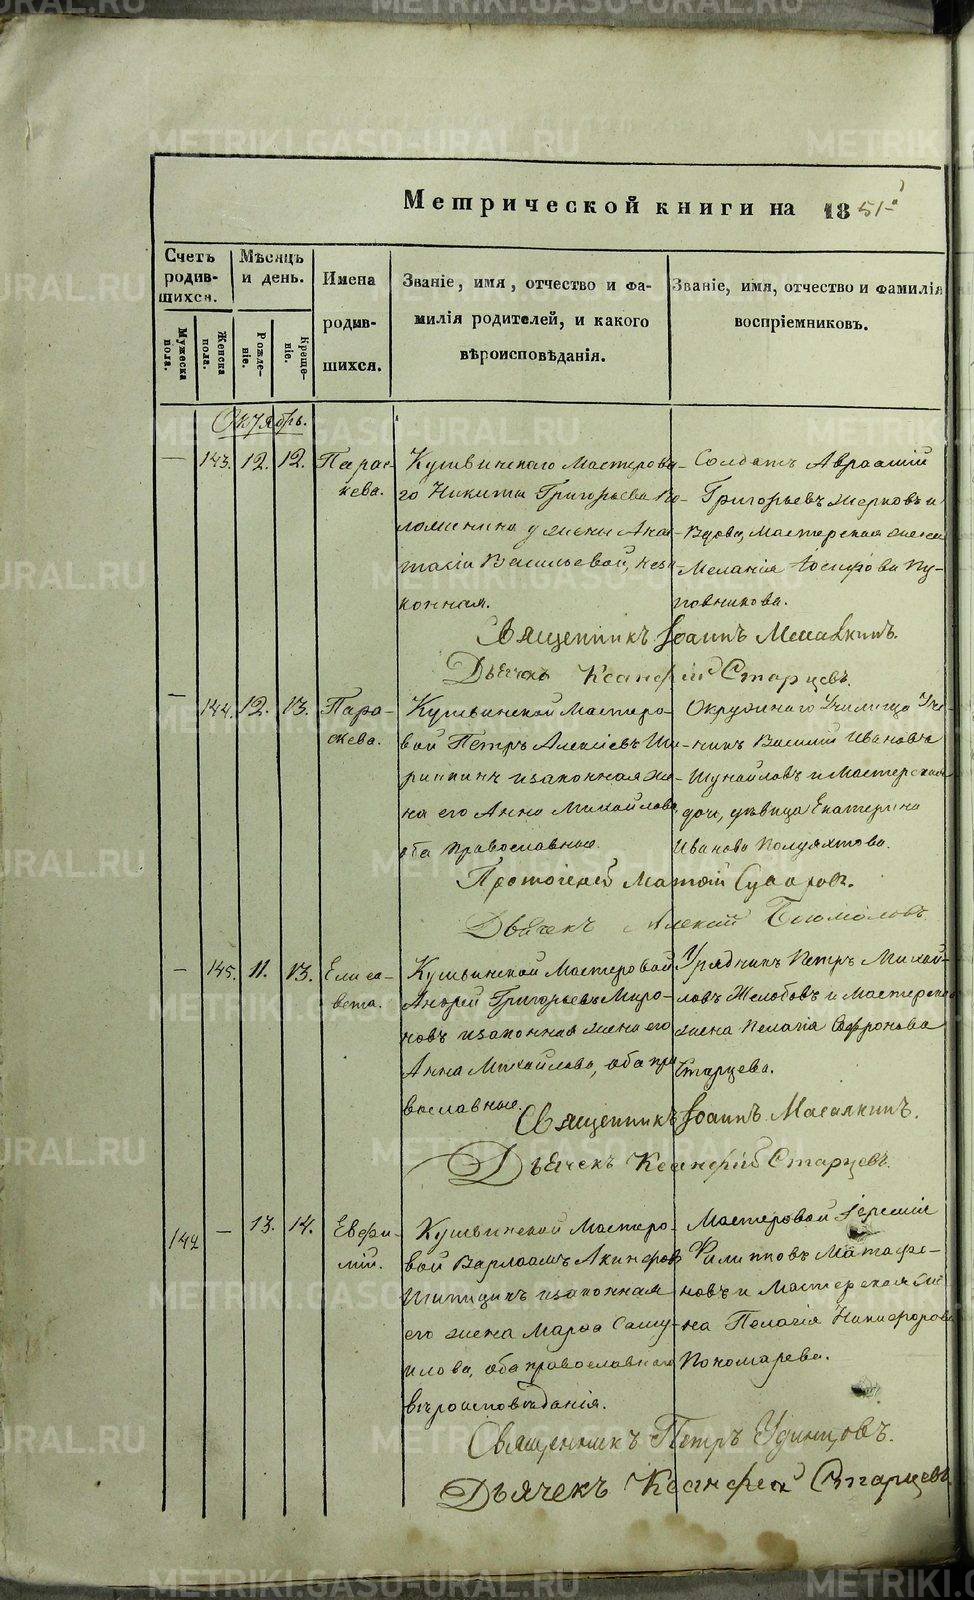 METRIKI.GASO-URAL.RU
Метрической книги на 1851й
Счетъ родившихся.
Мѣсяцъ и день.
Мужеска пола.
Женска пола.
Рожденіе.
Крещеніе.
Имена родившихся.
Званіе, имя, отчество и фамилія родителей, и какого вѣроисповѣданія.
Званіе, имя, отчество и фамилія воспріемниковъ.
Октябрь.
— 143. 12. 12. Парас-
кева.
Кушвинскаго Мастерова-
го Никиты Григорьева
у жены Анас-
тасіи Васильевой, неза-
конная.
Солдатъ Авраамій
Григорьевъ и
Вдова, Мастерская жена
Меланія Іосифова Пу-
повникова.
Священникъ Іоаннъ
Дьячекъ Ксенофій Старцевъ.
— 144. 12. 13. Пара-
скева.
Кушвинской Мастеро-
вой Петръ Алексіевъ Ши-
и законная же-
на его Анна Михайлова,
оба православные.
Окружнаго Училища Уче-
никъ Василій Ивановъ
и Мастерская
дочь, дѣвица Екатерина
Иванова Полуяхтова.
Протоіерей
Дьячекъ Алексій Богомоловъ.
— 145. 11. 13. Елиса-
вета.
Кушвинской Мастеровой
Андрей Григорьевъ Миро-
новъ и законная жена его
Анна Михайлова, оба пра-
вославные.
Урядникъ Петръ Михай-
ловъ Желобовъ и Мастерская
жена Пелагія Софронова
Старцева.
Священникъ Іоаннъ
Дьячекъ Ксенофій Старцевъ.
142 — 13. 14. Евфи-
мій.
Кушвинской Мастеро-
вой Варлаамъ Акинфов
Шипицинъ и законная
его жена Марфа Саму-
илова, оба православнаго
вѣроисповѣданія.
Мастеровой Іеремій
Филипповъ
новъ и Мастерская же-
на Пелагія Никифорова
Пономарева.
Священникъ Петръ Удинцовъ.
Дьячекъ Ксенофій Старцевъ